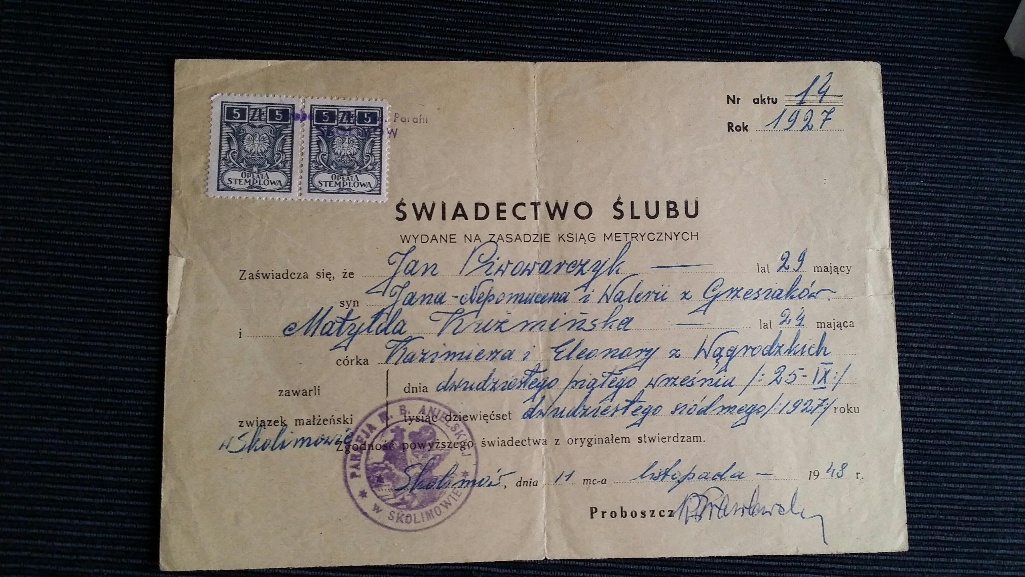 5 ZŁ 5 5 ZŁ 5
OPŁATA STEMPLOWA OPŁATA STEMPLOWA
Parafii
Nr aktu 14
Rok 1927
ŚWIADECTWO ŚLUBU
WYDANE NA ZASADZIE KSIĄG METRYCZNYCH
Zaświadcza się, że Jan Piwowarczyk — lat 29 mający
syn Jana-Nepomucena i Walerii z Grzesiaków.
i Matylda Kuźmińska — lat 24 mająca
córka Kazimierza i Eleonory z Wągrodzkich
zawarli dnia dwudziestego piątego września /:25-IX:/
związek małżeński tysiąc dziewięćset dwudziestego siódmego /:1927/ roku
w Skolimowie Zgodność powyższego świadectwa z oryginałem stwierdzam.
Skolimów, dnia 11 mc-a listopada — 1948 r.
Proboszcz
PARAFIA M. B. ANIELSKIEJ
W SKOLIMOWIE